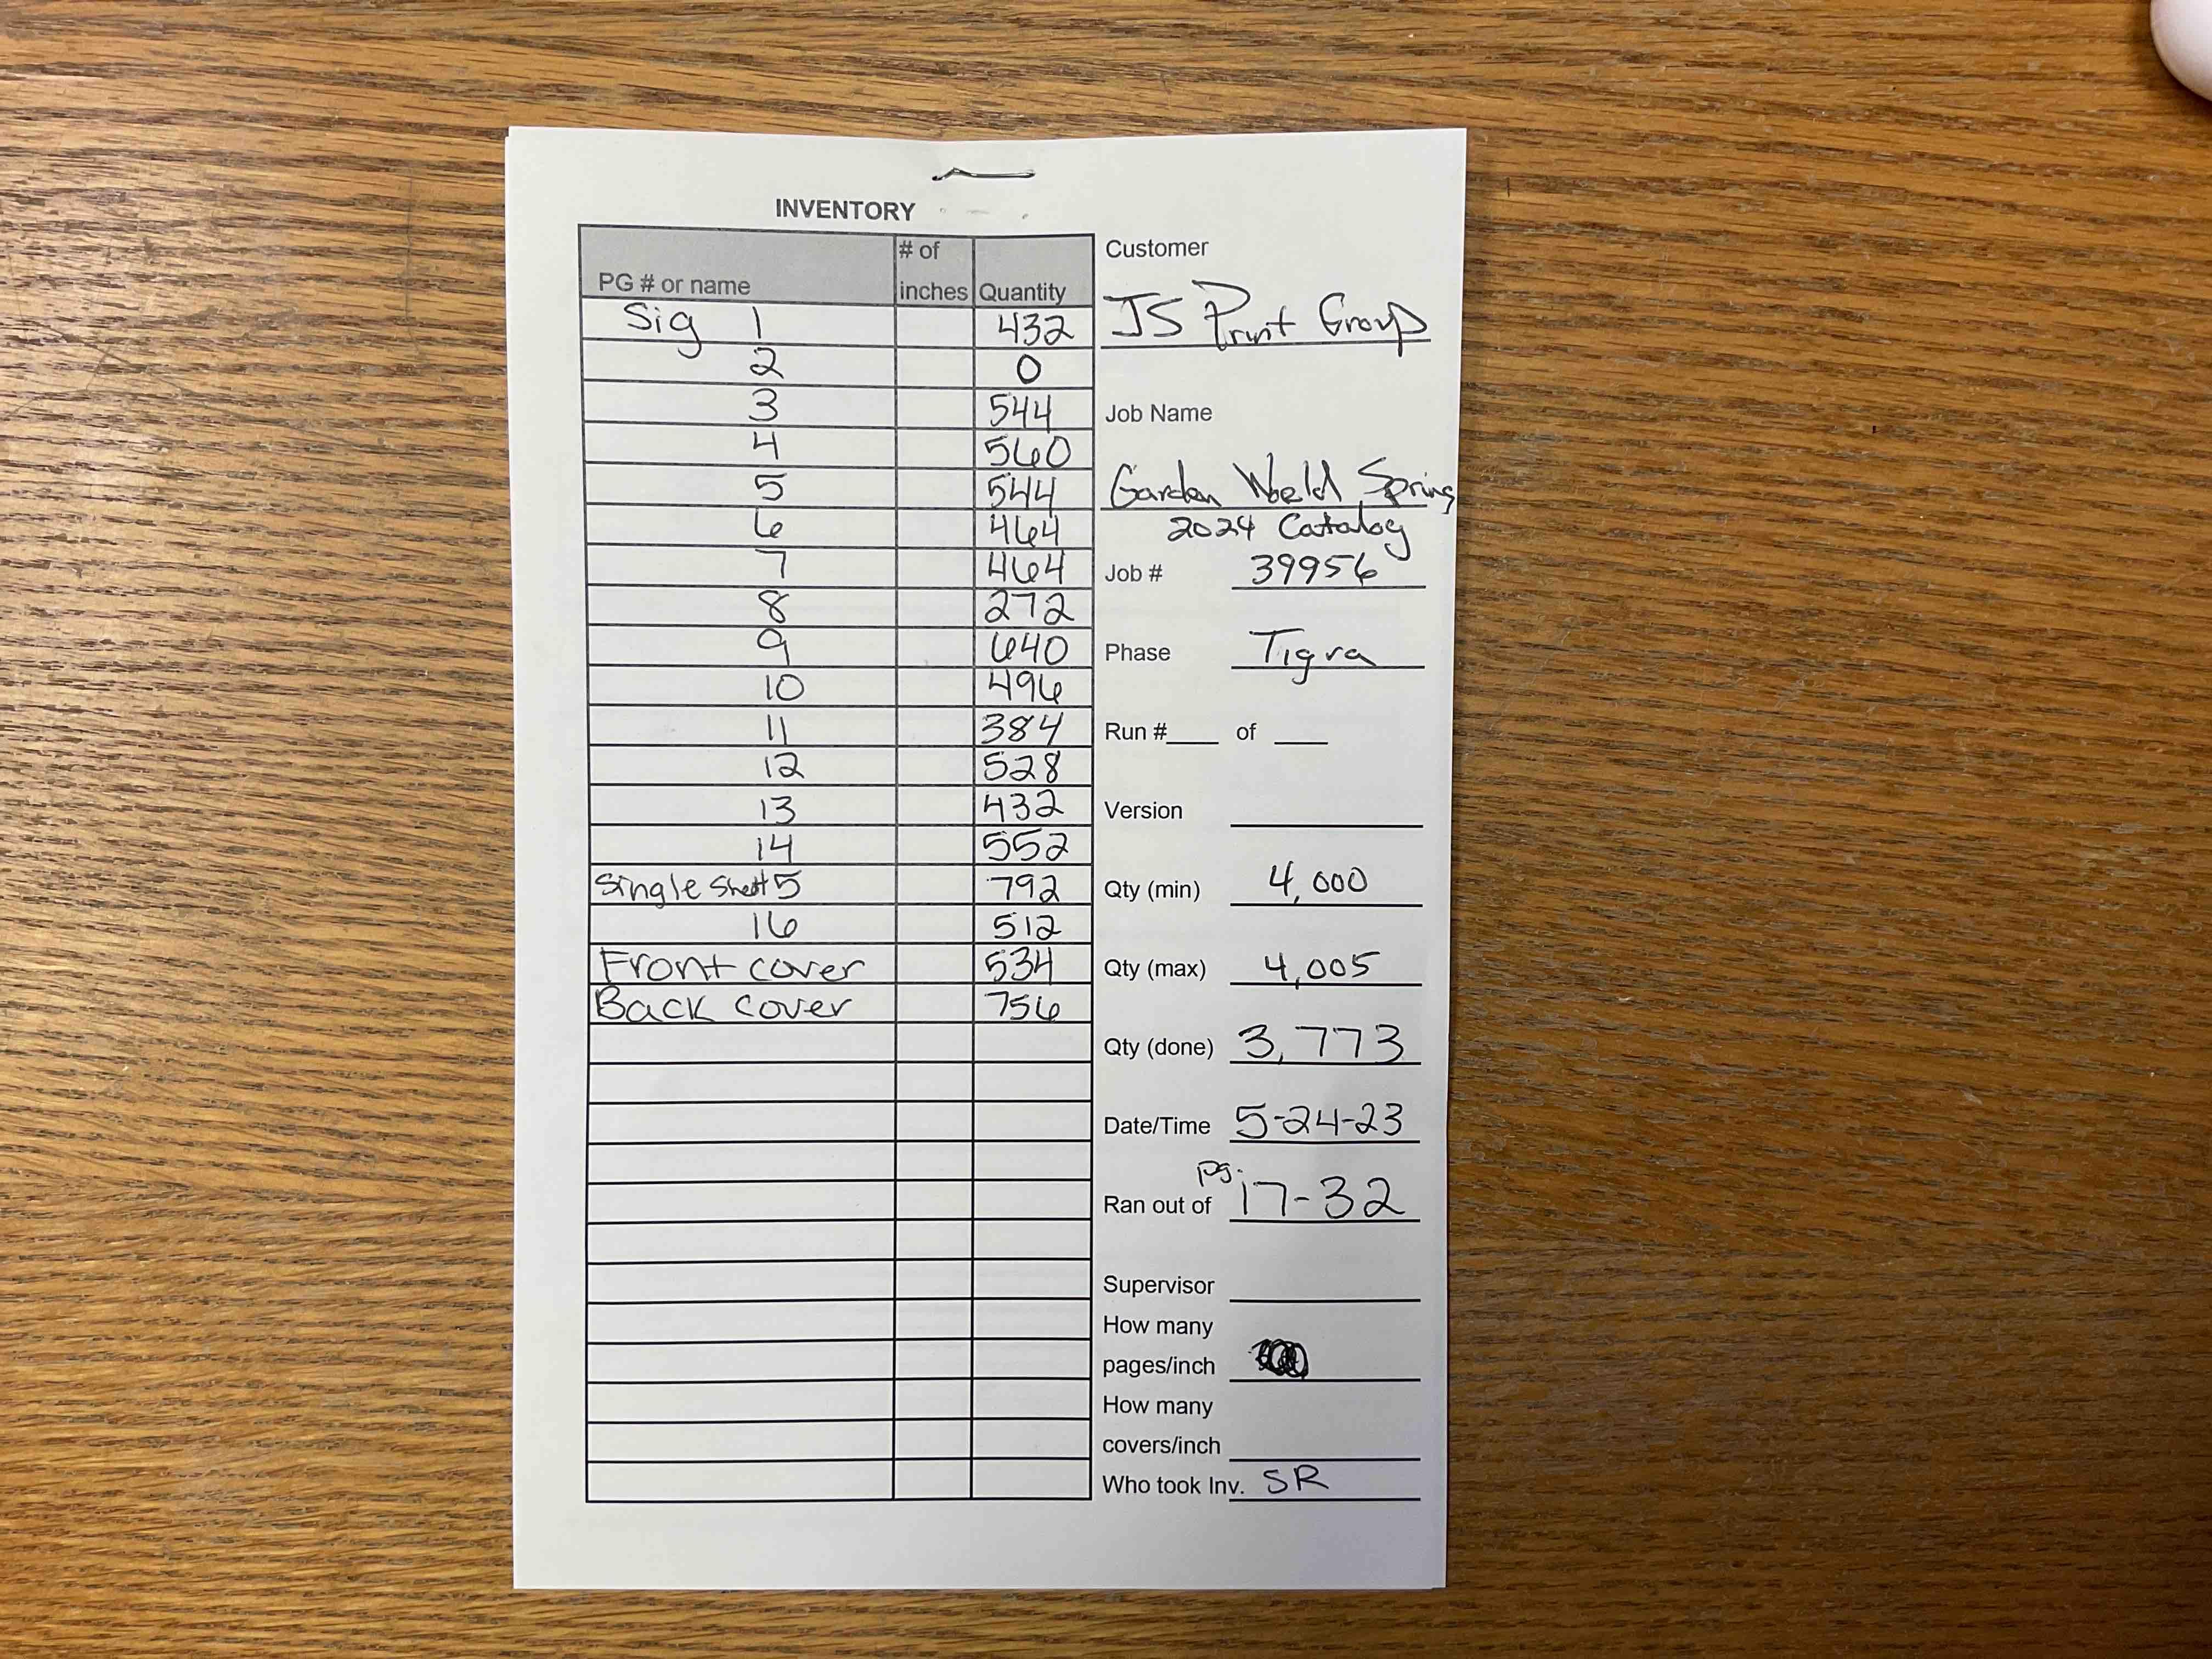 INVENTORY
PG # or name # of inches Quantity
Sig 1 432
2 0
3 544
4 560
5 544
6 464
7 464
8 272
9 640
10 496
11 384
12 528
13 432
14 552
Single Sheet 5 792
16 512
Front cover 534
Back cover 756
Customer
JS Print Group
Job Name
Garden World Spring
2024 Catalog
Job # 39956
Phase Tigra
Run #____ of ____
Version
Qty (min) 4,000
Qty (max) 4,005
Qty (done) 3,773
Date/Time 5-24-23
Ran out of pg. 17-32
Supervisor
How many
pages/inch
How many
covers/inch
Who took Inv. SR